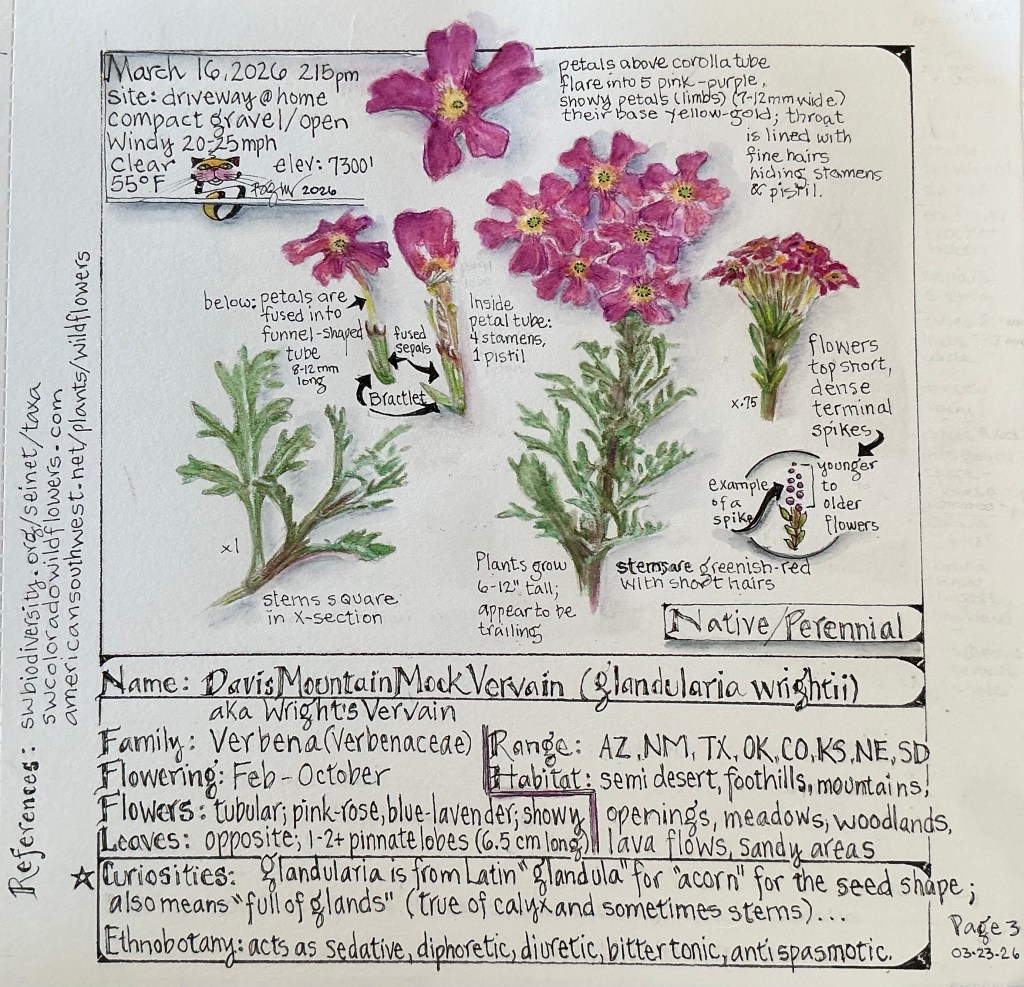 March 16, 2026 215pm
site: driveway @ home
compact gravel/open
Windy 20-25mph
Clear elev: 7300'
55°F
2026
petals above corolla tube
flare into 5 pink-purple,
showy petals (limbs) (7-12mm wide)
their base yellow-gold; throat
is lined with
fine hairs
hiding stamens
& pistil.
below: petals are
fused into
funnel-shaped
tube
8-12mm
long
fused
sepals
Bractlet
Inside
petal tube:
4 stamens,
1 pistil
x.75
flowers
top short,
dense
terminal
spikes
example
of a
spike
younger
to
older
flowers
x1
stems square
in X-section
Plants grow
6-12" tall;
appear to be
trailing
stems are greenish-red
with short hairs
Native/Perennial
Name: Davis Mountain Mock Vervain (glandularia wrightii)
aka Wright's Vervain
Family: Verbena (Verbenaceae)
Flowering: Feb-October
Flowers: tubular; pink-rose, blue-lavender; showy
Leaves: opposite; 1-2+ pinnate lobes (6.5 cm long)
Range: AZ, NM, TX, OK, CO, KS, NE, SD
Habitat: semi desert, foothills, mountains;
openings, meadows, woodlands,
lava flows, sandy areas
☆ Curiosities: glandularia is from Latin "glandula" for "acorn" for the seed shape;
also means "full of glands" (true of calyx and sometimes stems)...
Ethnobotany: acts as sedative, diphoretic, diuretic, bitter tonic, antispasmotic.
Page 3
03-23-26
References: swbiodiversity.org/seinet/taxa
swcoloradowildflowers.com
americansouthwest.net/plants/wildflowers